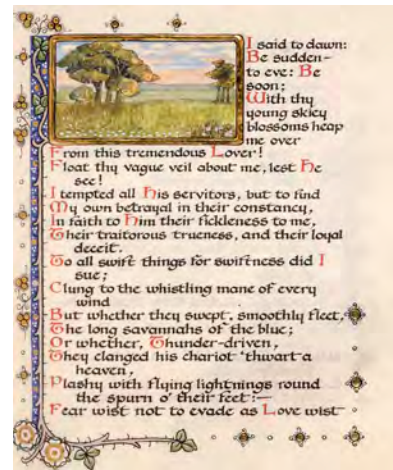 I said to dawn:
Be sudden—
to eve: Be
soon;
With thy
young skiey
blossoms heap
me over
From this tremendous Lover!
Float thy vague veil about me, lest He
see!
I tempted all His servitors, but to find
My own betrayal in their constancy,
In faith to Him their fickleness to me,
Their traitorous trueness, and their loyal
deceit.
To all swift things for swiftness did I
sue;
Clung to the whistling mane of every
wind
But whether they swept, smoothly fleet,
The long savannahs of the blue;
Or whether, Thunder-driven,
They clanged his chariot 'thwart a
heaven,
Plashy with flying lightnings round
the spurn o' their feet:—
Fear wist not to evade as Love wist